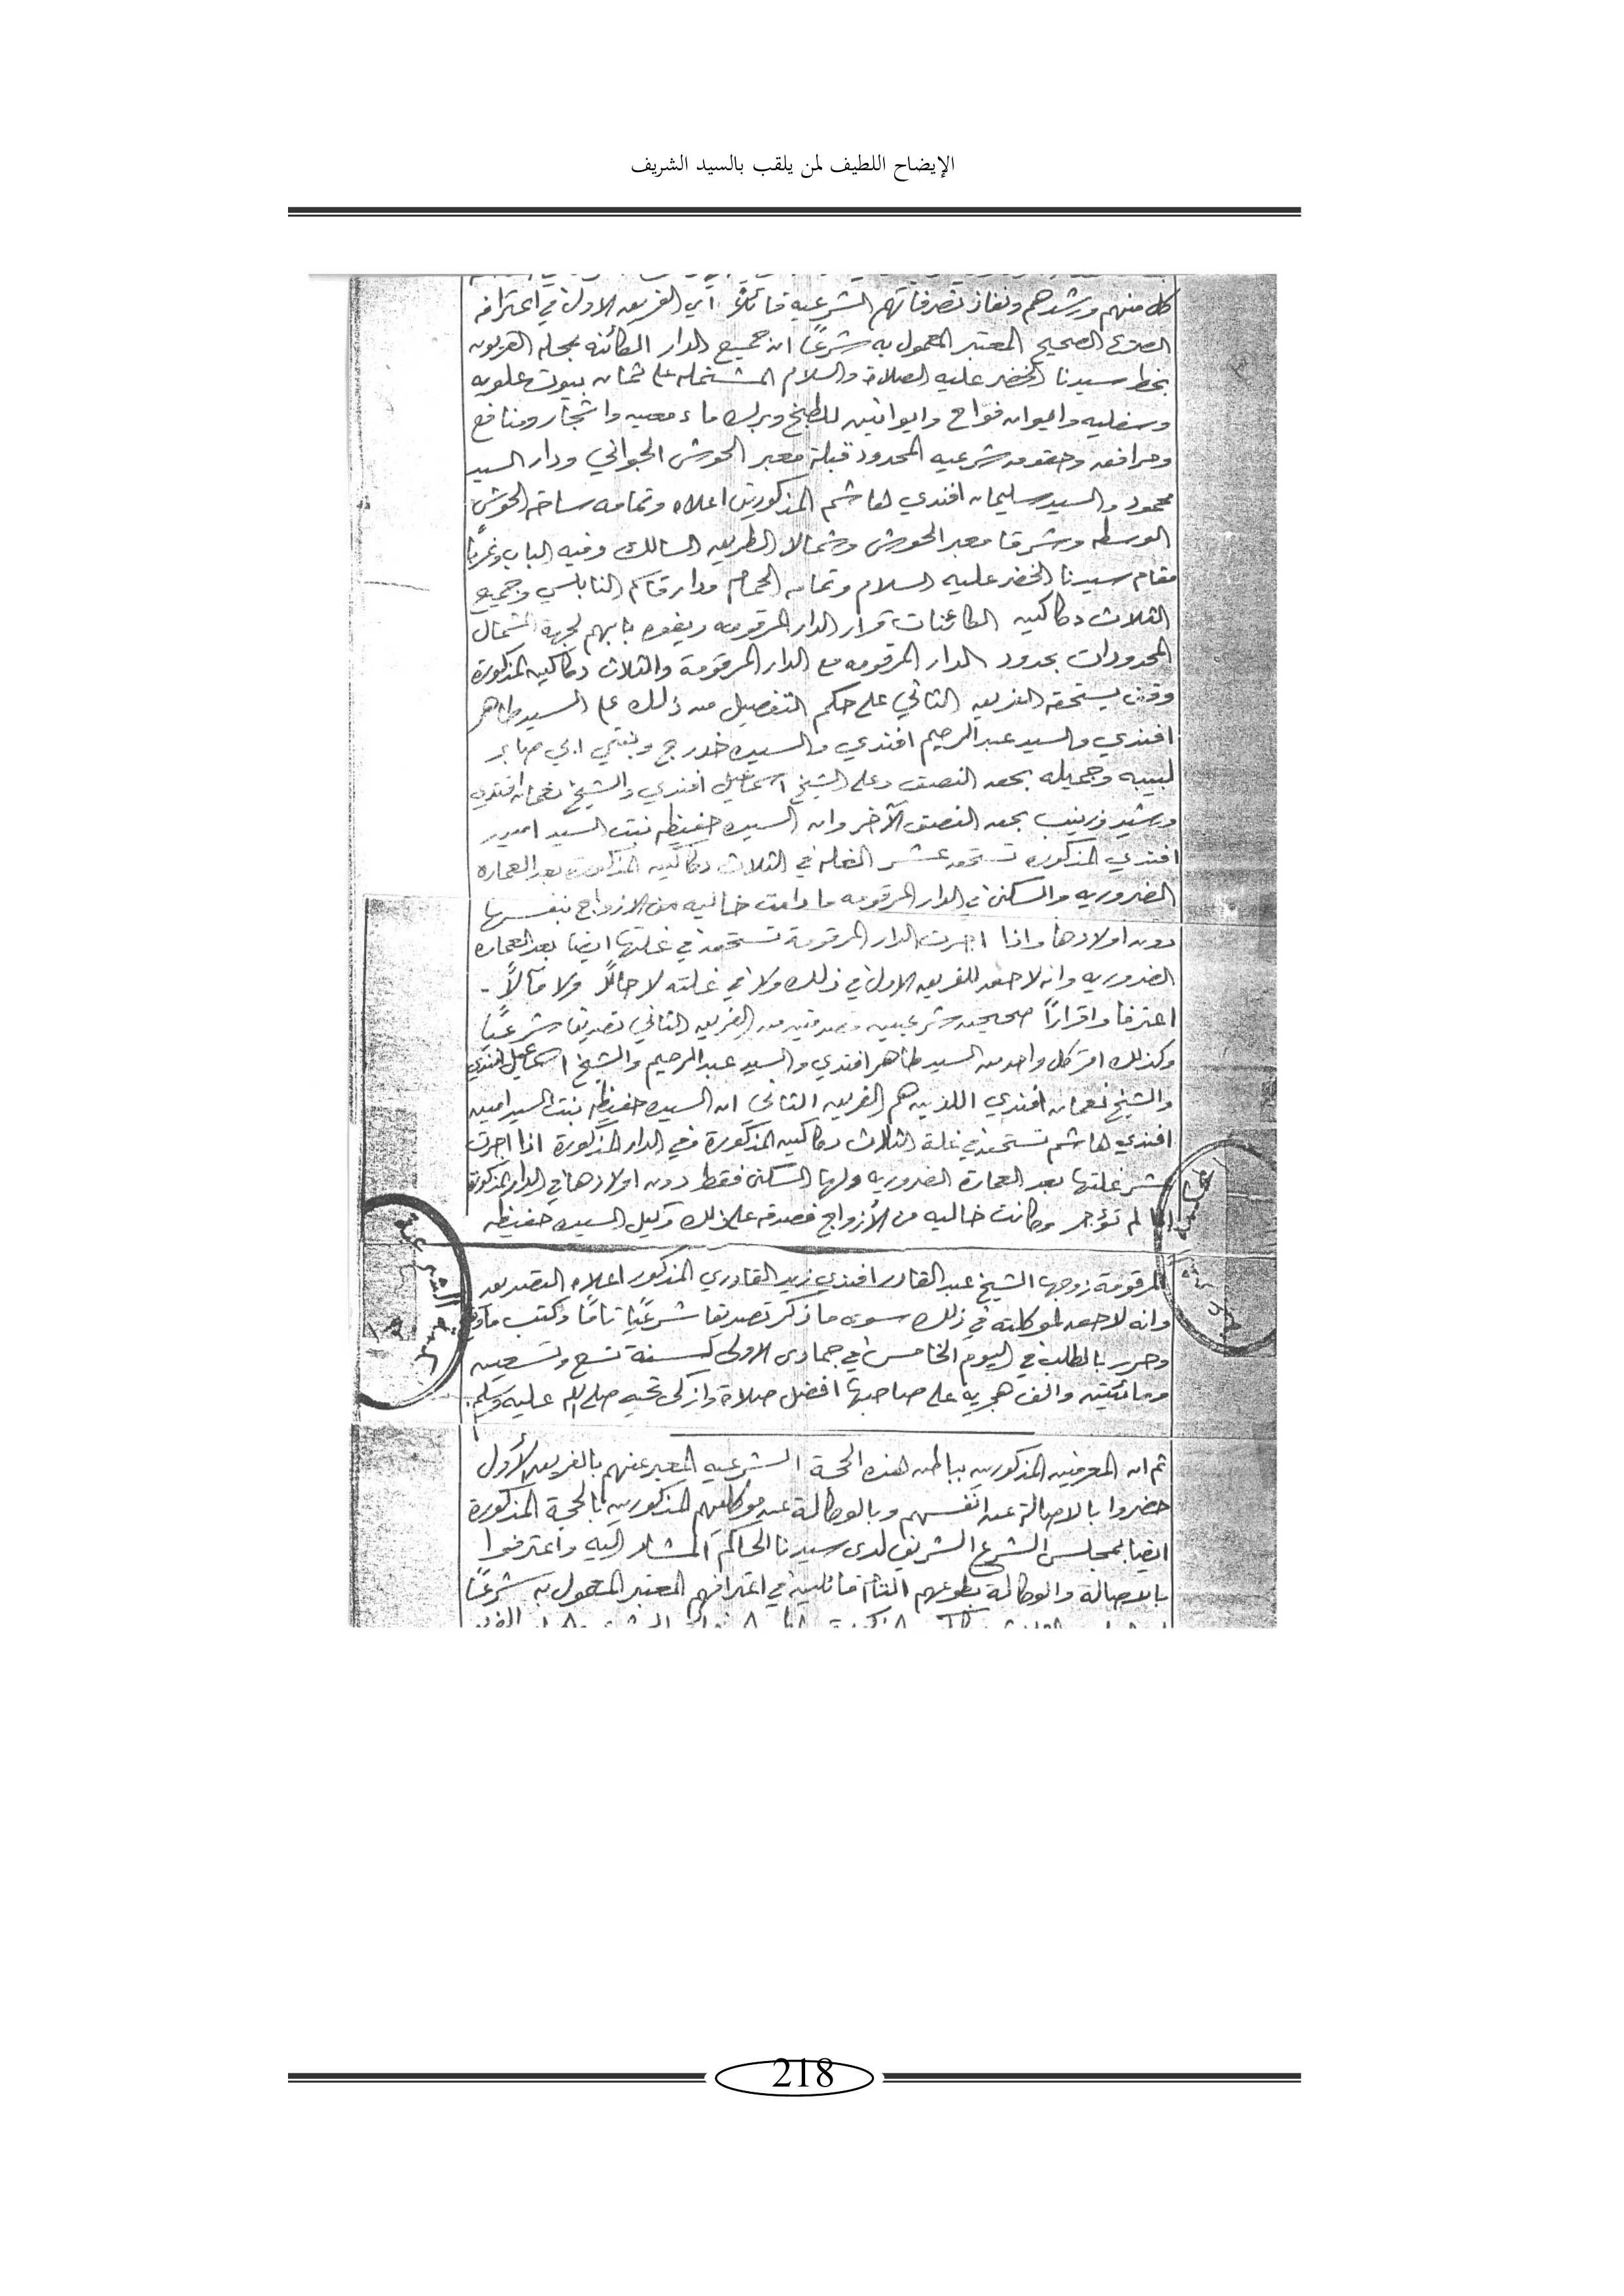 الإيضاح اللطيف لمن يلقب بالسيد الشريف
كل منهم ورشدهم ونفاذ تصرفاتهم الشرعيه قائلاً أي الفريق الاول في اعترافه
الصحيح المعتبر المعمول به شرعاً ان جميع الدار الكائنه بمحلة القريون
بخط سيدنا الخضر عليه الصلاة والسلام المشتمله على ثمان بيوت علويه
وسفليه وايوان فواح وايوانين للطبخ وبرك ماء معين واشجار ومنافع
ومرافق وحقوق شرعيه المحدود قبلة معبر الحوش الجواني ودار السيد
محمود والسيد سليمان افندي هاشم المذكورين اعلاه وتمامه ساحة الحوش
الوسطه وشرقا معبر الحوش وشمالا الطريق السالك وفيه الباب وغربا
مقام سيدنا الخضر عليه السلام وتمامه الحمام ودار قاسم النابلسي وجميع
الثلاث دكاكين الكائنات قرار الدار المرقومه ويفتح بابهم لجهة الشمال
المحدودات بحدود الدار المرقومه مع الدار المرقومة والثلاث دكاكين المذكورة
وقف يستحقه الفريق الثاني على حكم التفصيل من ذلك على السيد طاهر
افندي والسيد عبد الرحيم افندي والسيده خدرج وبنتي ابي صابر
لبيبه وجميله بحق النصف وعلى الشيخ اسماعيل افندي والشيخ نعمان افندي
ورشيد وزينب بحق النصف الآخر وان السيده حفيظه بنت السيد امين
افندي المذكوره تستحق عشر الغله في الثلاث دكاكين المذكورة بعد العماره
الضروريه والسكن في الدار المرقومه ما دامت خاليه من الازواج بنفسها
دون اولادها واذا اجرت الدار المرقومة تستحق في غلتها ايضا بعد العماره
الضروريه وانه لاحق للفريق الاول في ذلك ولا في غلته لا حالاً ولا مآلاً -
اعترفا واقراراً صحيحين شرعيين مصدقين من الفريق الثاني تصديقا شرعيا
وكذلك اقر كل واحد من السيد طاهر افندي والسيد عبد الرحيم والشيخ اسماعيل افندي
والشيخ نعمان افندي اللذين هم الفريق الثاني ان السيده حفيظه بنت السيد امين
افندي هاشم تستحق في غلة الثلاث دكاكين المذكورة وفي الدار المذكورة اذا اجرت
عشر غلتها بعد العمارة الضروريه ولها السكن فقط دون اولادها في الدار المذكورة
اذا لم تؤجر وكانت خاليه من الأزواج فصدقه على ذلك وكيل السيده حفيظه
المرقومة زوجها الشيخ عبد القادر افندي زيد القادري المذكور اعلاه التصديق
وانه لاحق لموكلته في ذلك سوى ما ذكر تصديقا شرعيا تاما وكتب ما وقع
وحرر بالطلب في اليوم الخامس في جمادى الاولى لسنة تسع وتسعين
ومائتين والف هجريه على صاحبها افضل صلاة وازكى تحيه صلى الله عليه وسلم
ثم ان المعرفين المذكورين بباطن هذه الحجة الشرعيه المعبر عنهم بالفريق الأول
حضروا بالاصالة عن انفسهم وبالوكالة عن موكليهم المذكورين بالحجة المذكورة
ايضا بمجلس الشرع الشريف لدى سيدنا الحاكم المشار اليه واعترفوا
بالاصالة والوكالة بطوعهم التام قائلين في اعترافهم المعتبر المعمول به شرعاً
218